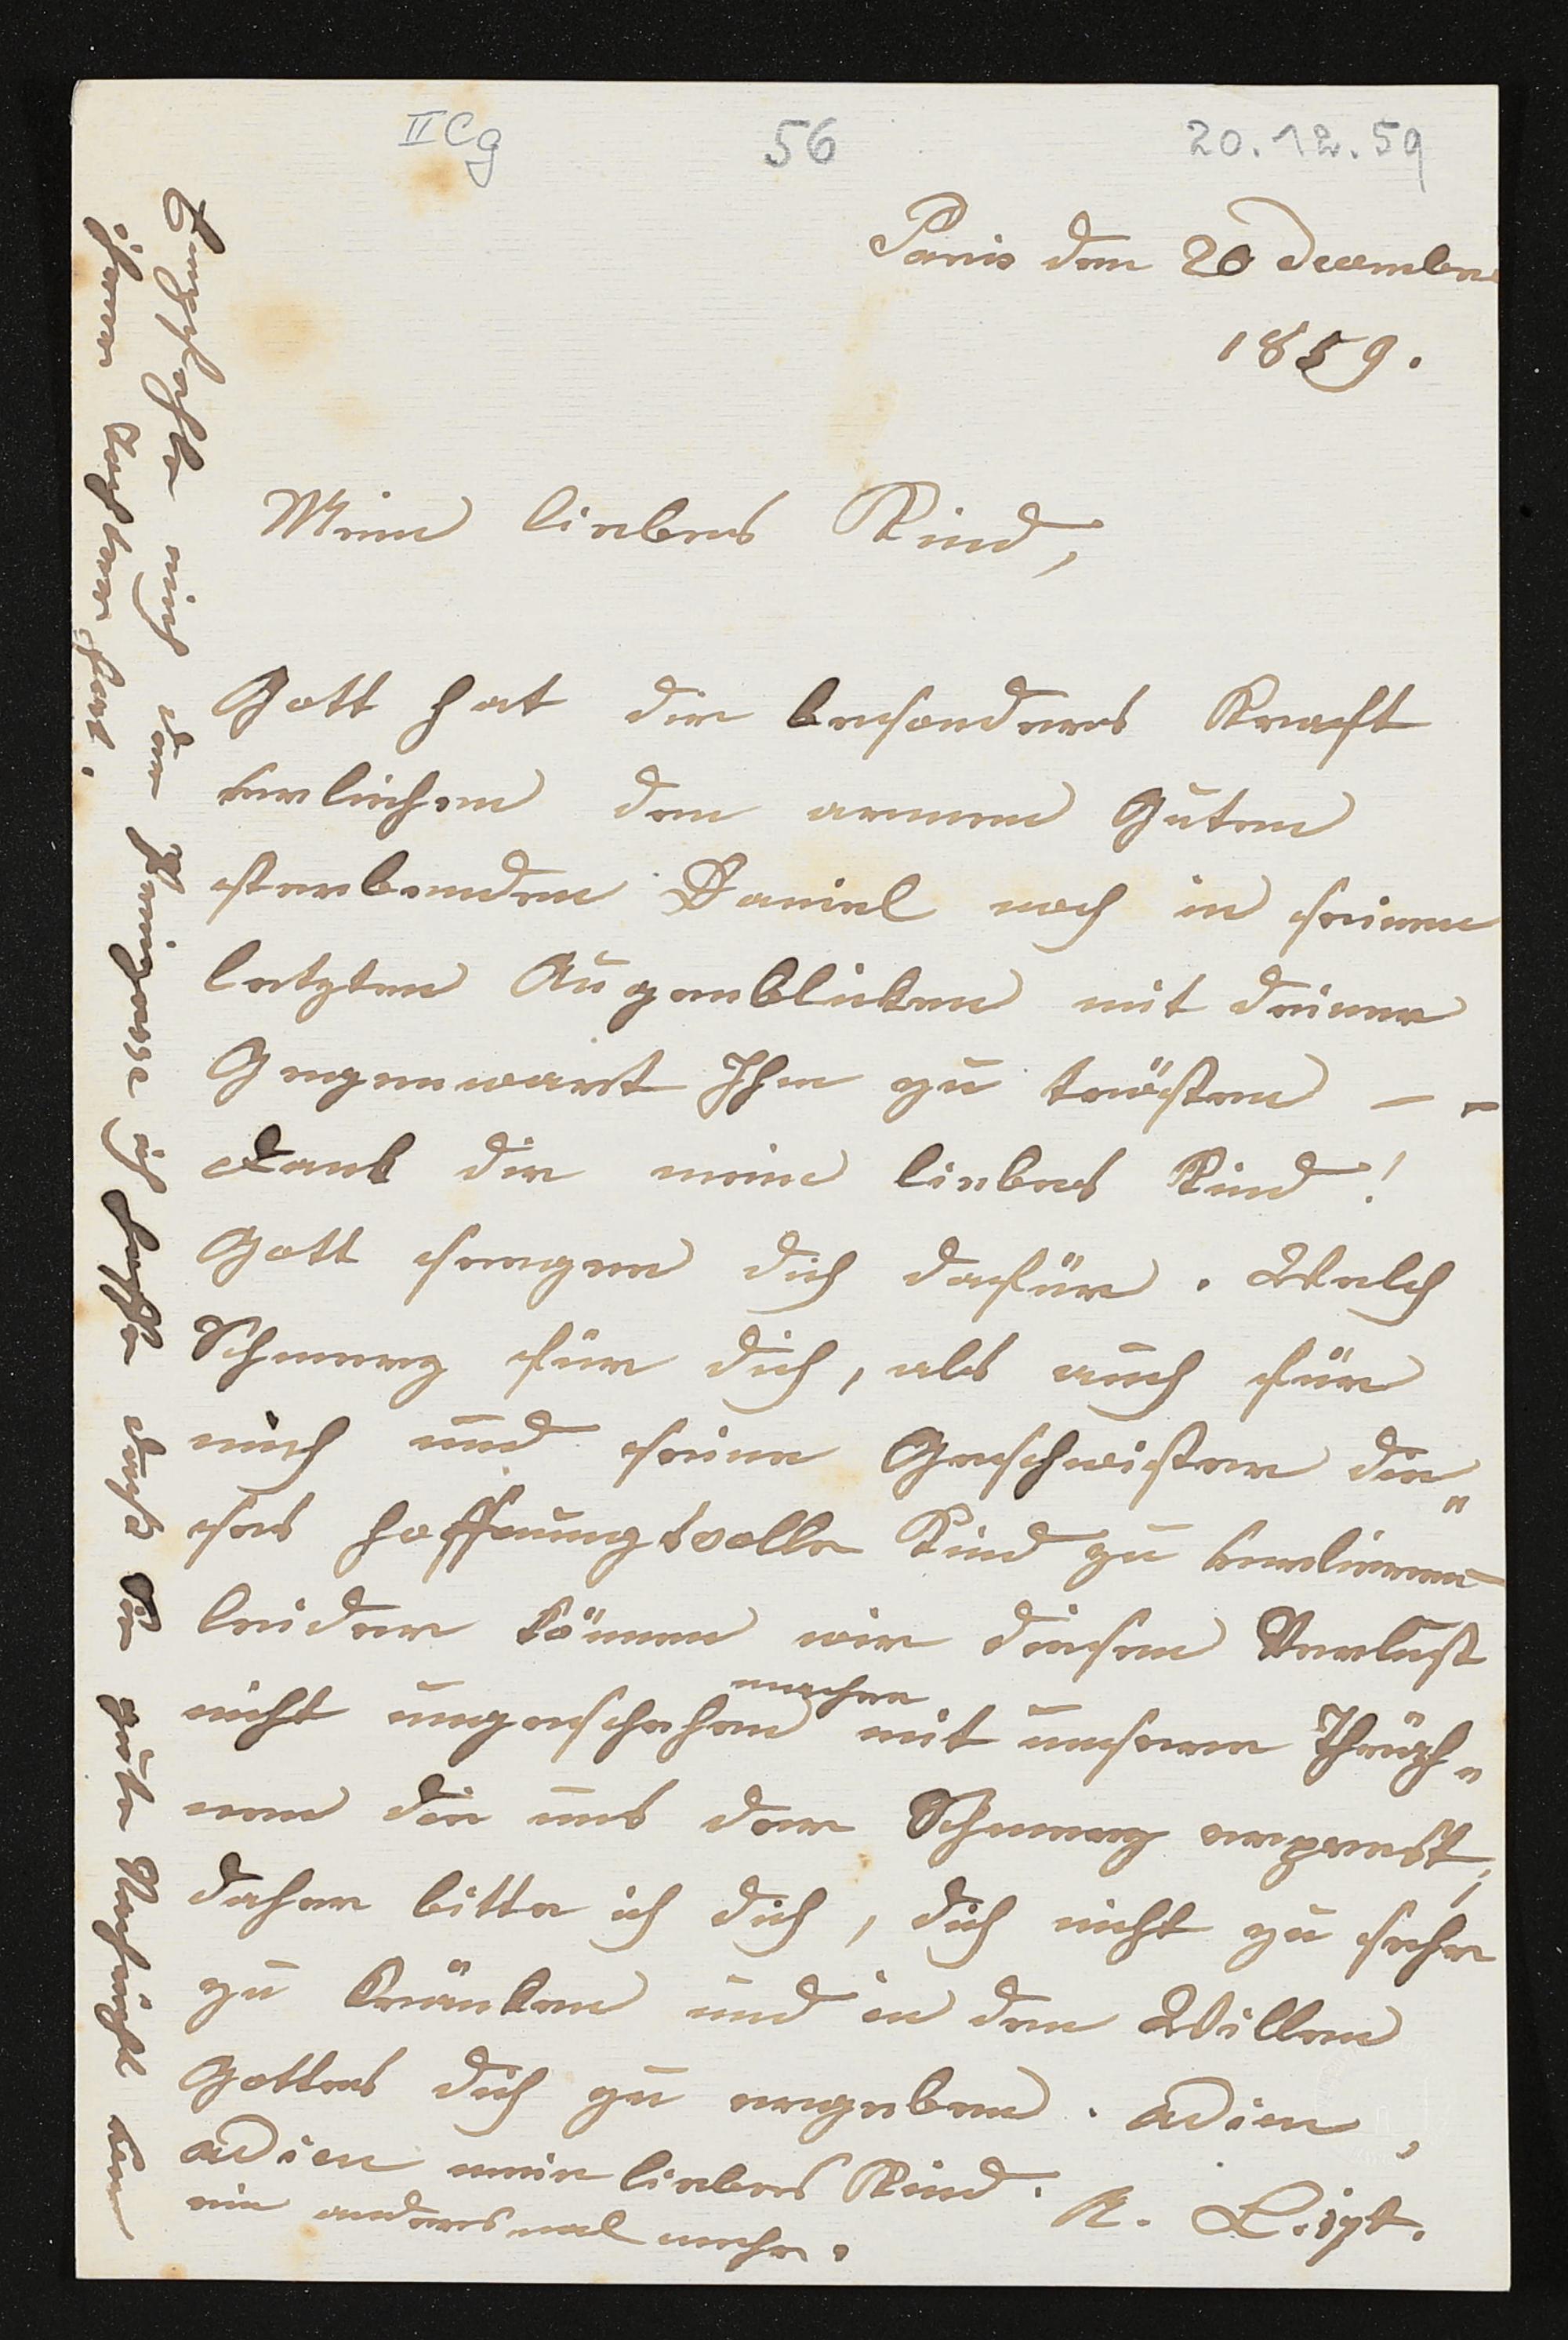 II Cg 56 20.12.59
Paris den 20 December
1859.
Mein liebes Kind,
Gott hat dir besonders Kraft
verliehen dem armen Guten
sterbenden Daniel noch in seinen
letzten Augenblicken mit deiner
Gegenwart Ihn zu trösten — –
Dank dir mein liebes Kind!
Gott seegne dich dafür. Welch
Schmerz für dich, als auch für
mich und seine Geschwister die„
ses hoffnungsvolle Kind zu verlieren
leider können wir diesen Verlust
nicht ungeschehen machen mit unseren Thräh„
nen die uns der Schmerz erpresst,
daher bitte ich dich, dich nicht zu sehr
zu kränken und in den Willen
Gottes dich zu ergeben. adieu,
adieu mein liebes Kind.
ein anderes mal mehr.
A. Liszt.
Empfehle mich der Prinzesse ich hoffe dass Sie gute Nachricht von
ihrer Tochter hat.